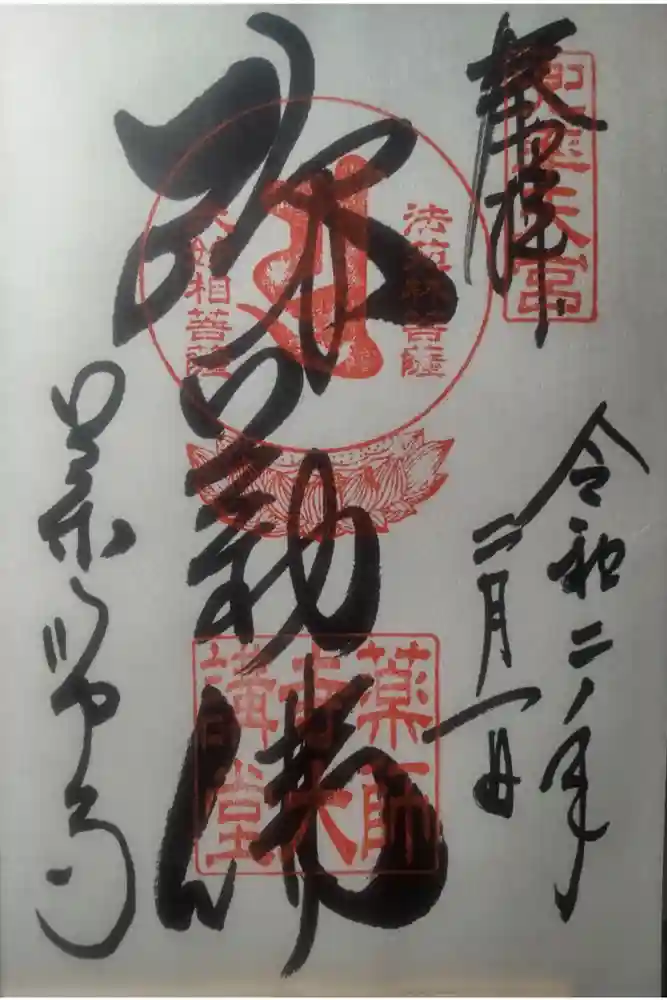 奉拝
兜率天宮
令和二年
二月一日
弥勒佛
法苑林菩薩
大妙相菩薩
薬師
寺大
講堂
薬師寺